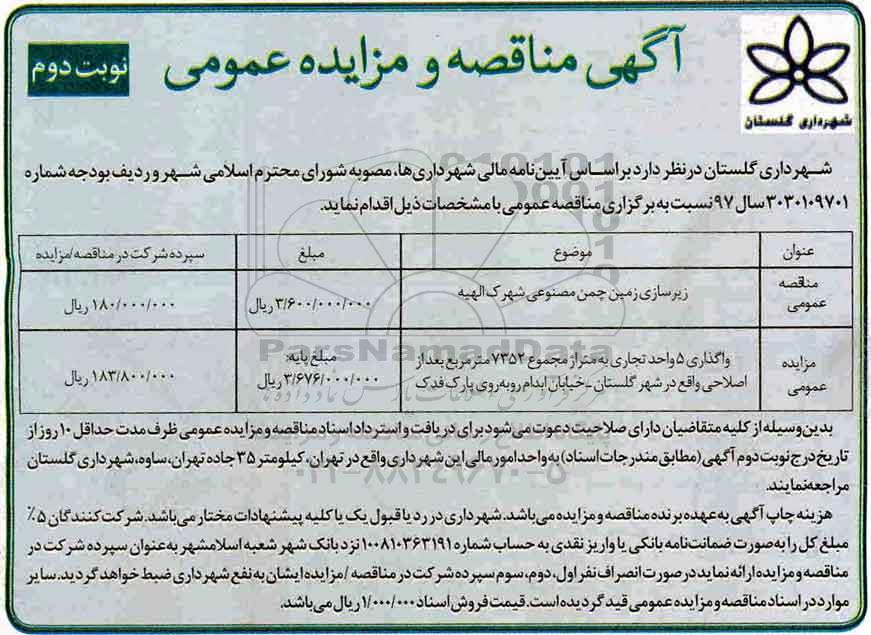 آگهی مناقصه و مزایده عمومی
نوبت دوم
شهرداری گلستان
شهرداری گلستان در نظر دارد بر اساس آیین‌نامه مالی شهرداری‌ها، مصوبه شورای محترم اسلامی شهر و ردیف بودجه شماره
۳۰۳۰۱۰۹۷۰۱ سال ۹۷ نسبت به برگزاری مناقصه عمومی با مشخصات ذیل اقدام نماید.
عنوان موضوع مبلغ سپرده شرکت در مناقصه/مزایده
مناقصه عمومی زیرسازی زمین چمن مصنوعی شهرک الهیه ۳/۶۰۰/۰۰۰/۰۰۰ ریال ۱۸۰/۰۰۰/۰۰۰ ریال
مزایده عمومی واگذاری ۵ واحد تجاری به متراژ مجموع ۷۳۵۲ متر مربع بعد از
اصلاحی واقع در شهر گلستان ـ خیابان ایدام روبه‌روی پارک فدک مبلغ پایه: ۳/۶۷۶/۰۰۰/۰۰۰ ریال ۱۸۳/۸۰۰/۰۰۰ ریال
ParsNamadData
بدین‌وسیله از کلیه متقاضیان دارای صلاحیت دعوت می‌شود برای دریافت و استرداد اسناد مناقصه و مزایده عمومی ظرف مدت حداقل ۱۰ روز از
تاریخ درج نوبت دوم آگهی (مطابق مندرجات اسناد) به واحد امور مالی این شهرداری واقع در تهران، کیلومتر ۳۵ جاده تهران، ساوه، شهرداری گلستان
مراجعه نمایند.
۰۲۱-۸۸۳۴۹۶۷۰-۵
هزینه چاپ آگهی به عهده برنده مناقصه و مزایده می‌باشد. شهرداری در رد یا قبول یک یا کلیه پیشنهادات مختار می‌باشد. شرکت‌کنندگان ۵٪
مبلغ کل را به‌صورت ضمانت‌نامه بانکی یا واریز نقدی به حساب شماره ۱۰۰۸۱۰۳۶۳۱۹۱ نزد بانک شهر شعبه اسلامشهر به‌عنوان سپرده شرکت در
مناقصه و مزایده ارائه نماید در صورت انصراف نفر اول، دوم، سوم سپرده شرکت در مناقصه / مزایده ایشان به نفع شهرداری ضبط خواهد گردید. سایر
موارد در اسناد مناقصه و مزایده عمومی قید گردیده است. قیمت فروش اسناد ۱/۰۰۰/۰۰۰ ریال می‌باشد.